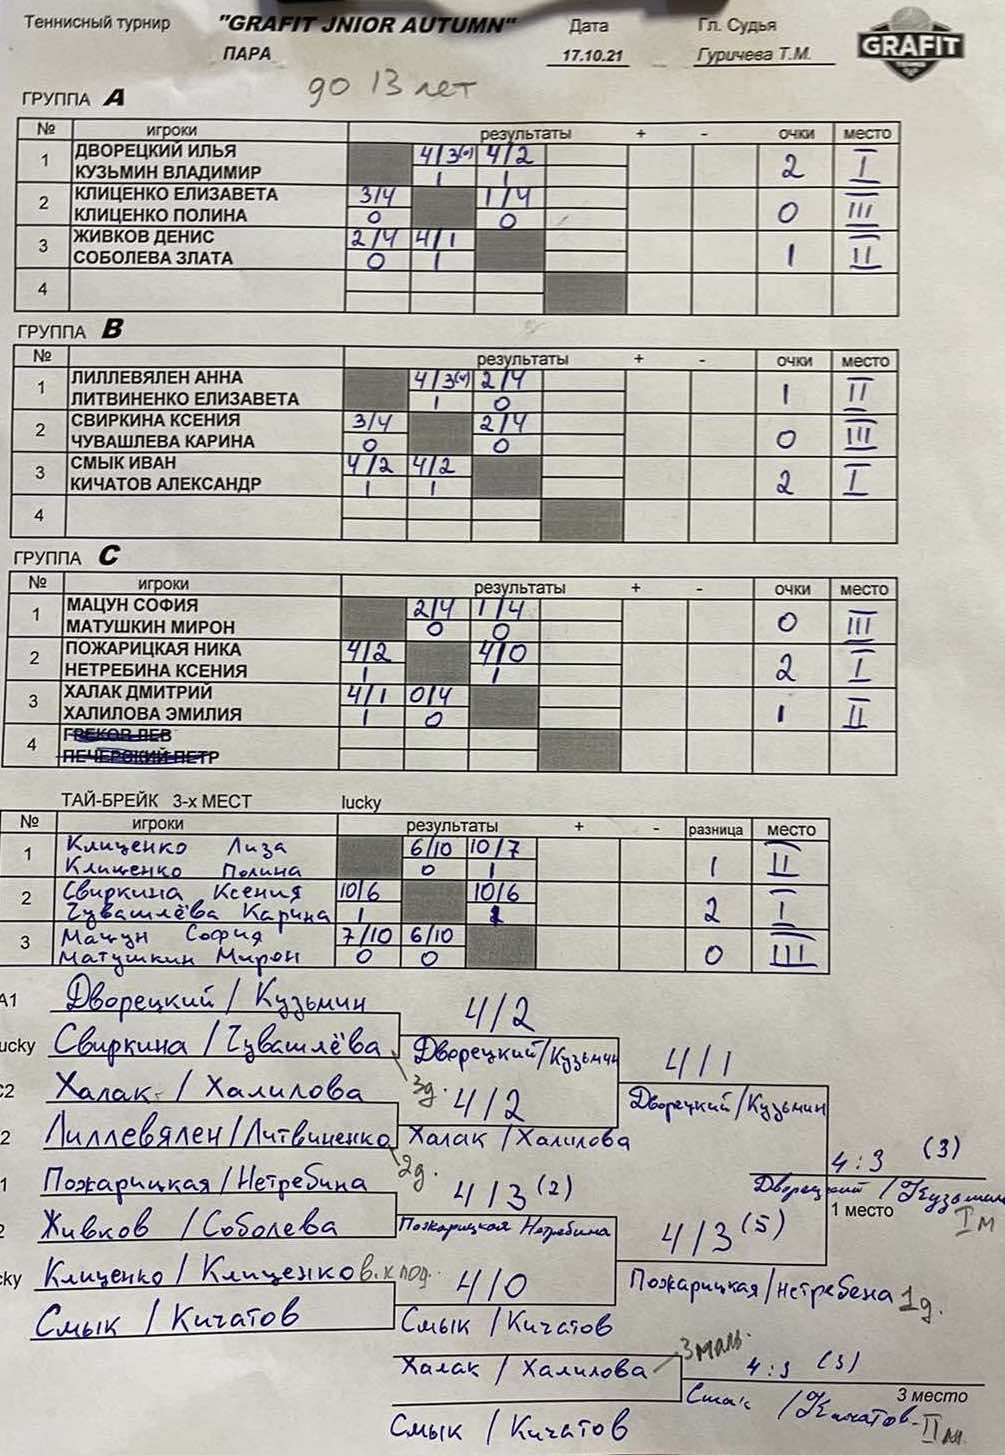 Теннисный турнир "GRAFIT JNIOR AUTUMN" Дата Гл. Судья
ПАРА 17.10.21 Гуричева Т.М.
GRAFIT
до 13 лет
ГРУППА A
№ игроки результаты + - очки место
1 ДВОРЕЦКИЙ ИЛЬЯ 4/3 4/2 2 I
КУЗЬМИН ВЛАДИМИР 1 1
2 КЛИЦЕНКО ЕЛИЗАВЕТА 3/4 1/4 0 III
КЛИЦЕНКО ПОЛИНА 0 0
3 ЖИВКОВ ДЕНИС 2/4 4/1 1 II
СОБОЛЕВА ЗЛАТА 0 1
4
ГРУППА B
№ результаты + - очки место
1 ЛИЛЛЕВЯЛЕН АННА 4/3 2/4 1 II
ЛИТВИНЕНКО ЕЛИЗАВЕТА 1 0
2 СВИРКИНА КСЕНИЯ 3/4 2/4 0 III
ЧУВАШЛЕВА КАРИНА 0 0
3 СМЫК ИВАН 4/2 4/2 2 I
КИЧАТОВ АЛЕКСАНДР 1 1
4
ГРУППА C
№ игроки результаты + - очки место
1 МАЦУН СОФИЯ 2/4 1/4 0 III
МАТУШКИН МИРОН 0 0
2 ПОЖАРИЦКАЯ НИКА 4/2 4/0 2 I
НЕТРЕБИНА КСЕНИЯ 1 1
3 ХАЛАК ДМИТРИЙ 4/1 0/4 1 II
ХАЛИЛОВА ЭМИЛИЯ 1 0
4 ГРЕКОВ ЛЕВ
ПЕЧЕРСКИЙ ПЕТР
ТАЙ-БРЕЙК 3-х МЕСТ lucky
№ игроки результаты + - разница место
1 Клиценко Лиза 6/10 10/7 1 II
Клиценко Полина 0 1
2 Свиркина Ксения 10/6 10/6 2 I
Чувашлёва Карина 1 1
3 Мацун София 7/10 6/10 0 III
Матушкин Мирон 0 0
A1 Дворецкий / Кузьмин 4/2
ucky Свиркина / Чувашлёва Дворецкий/Кузьмин 4/1
C2 Халак / Халилова 3д. 4/2 Дворецкий/Кузьмин
2 Лиллевялен/Литвиненко Халак / Халилова 4:3 (3)
2д.
1 Пожарицкая/Нетребина 4/3 (2) Дворецкий /Кузьмин
1 место I м
2 Живков / Соболева Пожарицкая Нетребина 4/3 (5)
cky Клиценко / Клиценко в.к под. 4/0 Пожарицкая/Нетребена 1д.
Смык / Кичатов Смык / Кичатов
3 маль.
Халак / Халилова 4:3 (3)
Смык /Кичатов 3 место II м.
Смык / Кичатов